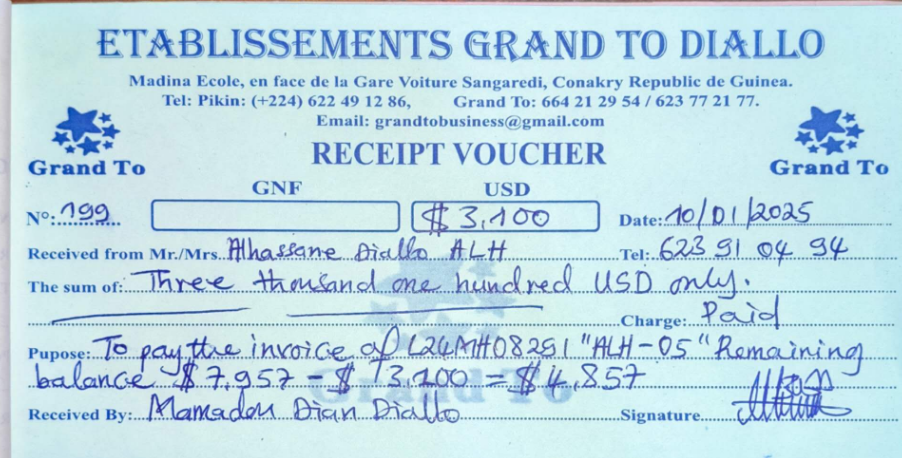 ETABLISSEMENTS GRAND TO DIALLO
Madina Ecole, en face de la Gare Voiture Sangaredi, Conakry Republic de Guinea.
Tel: Pikin: (+224) 622 49 12 86, Grand To: 664 21 29 54 / 623 77 21 77.
Email: grandtobusiness@gmail.com
Grand To RECEIPT VOUCHER Grand To
GNF USD
Nº: 199 $ 3,100 Date: 10/01/2025
Received from Mr./Mrs. Alhassane Diallo ALH Tel: 623 91 04 94
The sum of: Three thousand one hundred USD only.
Charge: Paid
Pupose: To pay the invoice of "ALH-05" Remaining
balance $ 7,957 - $ 3,100 = $ 4,857
Grand To
Received By: Mamadou Dian Diallo Signature